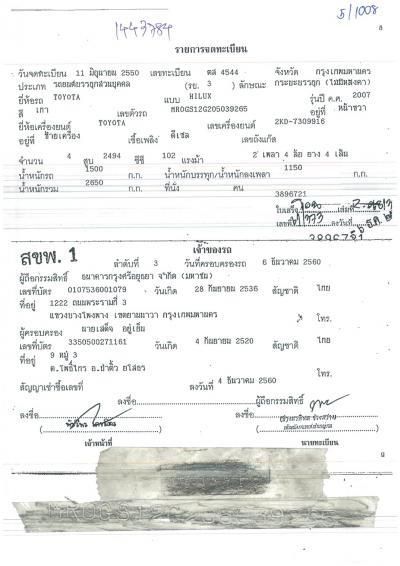 1443784
5/1008
8
รายการจดทะเบียน
วันจดทะเบียน 11 มิถุนายน 2550 เลขทะเบียน ตส 4544 จังหวัด กรุงเทพมหานคร
ประเภท รถยนต์บรรทุกส่วนบุคคล (รย. 3 ) ลักษณะ กระบะบรรทุก (ไม่มีหลังคา)
ยี่ห้อรถ TOYOTA แบบ HILUX รุ่นปี ค.ศ. 2007
สี เทา เลขตัวรถ MROGS12G205039265 อยู่ที่ หน้าขวา
ยี่ห้อเครื่องยนต์ TOYOTA เลขเครื่องยนต์ 2KD-7309916
อยู่ที่ ซ้ายเครื่อง เชื้อเพลิง ดีเซล เลขถังแก๊ส
จำนวน 4 สูบ 2494 ซีซี 102 แรงม้า 2 เพลา 4 ล้อ ยาง 4 เส้น
น้ำหนักรถ 1500 ก.ก. น้ำหนักบรรทุก/น้ำหนักลงเพลา 1150 ก.ก.
น้ำหนักรวม 2650 ก.ก. ที่นั่ง คน
3896721
ใบเสร็จ เล่มที่
เลขที่ ลงวันที่
สขพ. 1
เจ้าของรถ
ลำดับที่ 3 วันที่ครอบครองรถ 6 ธันวาคม 2560
ผู้ถือกรรมสิทธิ์ ธนาคารกรุงศรีอยุธยา จำกัด (มหาชน)
เลขที่บัตร 0107536001079 วันเกิด 28 กันยายน 2536 สัญชาติ ไทย
ที่อยู่ 1222 ถนนพระรามที่ 3
แขวงบางโพงพาง เขตยานนาวา กรุงเทพมหานคร โทร.
ผู้ครอบครอง นายเสด็จ อยู่เย็น
เลขที่บัตร 3350500271161 วันเกิด 4 กันยายน 2520 สัญชาติ ไทย
ที่อยู่ 9 หมู่ 3
ต.โพธิ์ไทร อ.ป่าติ้ว ยโสธร โทร.
สัญญาเช่าซื้อเลขที่ ลงวันที่ 4 ธันวาคม 2560
ลงชื่อ ผู้ถือกรรมสิทธิ์
ลงชื่อ ลงชื่อ
เจ้าหน้าที่ นายทะเบียน